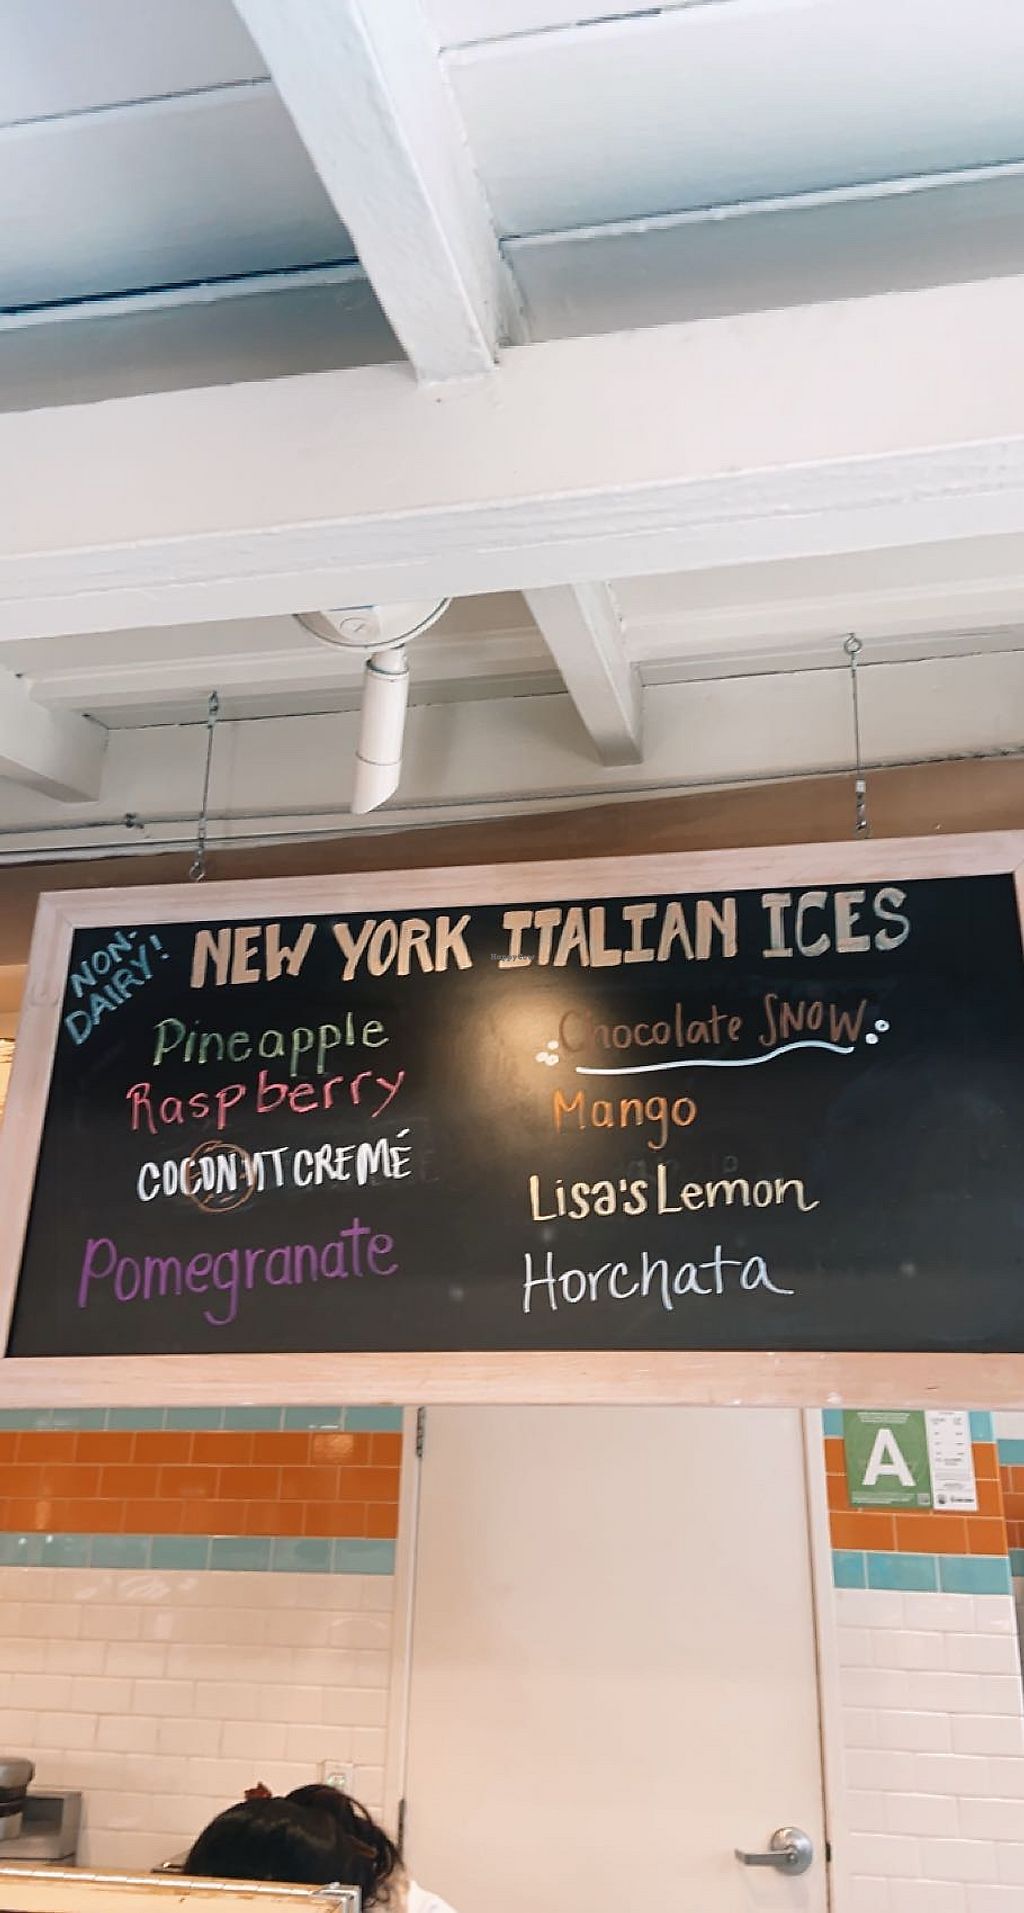 NON-
DAIRY!
NEW YORK ITALIAN ICES
Pineapple
Raspberry
COCONUT CREMÉ
Pomegranate
Chocolate SNOW
Mango
Lisa's Lemon
Horchata
A